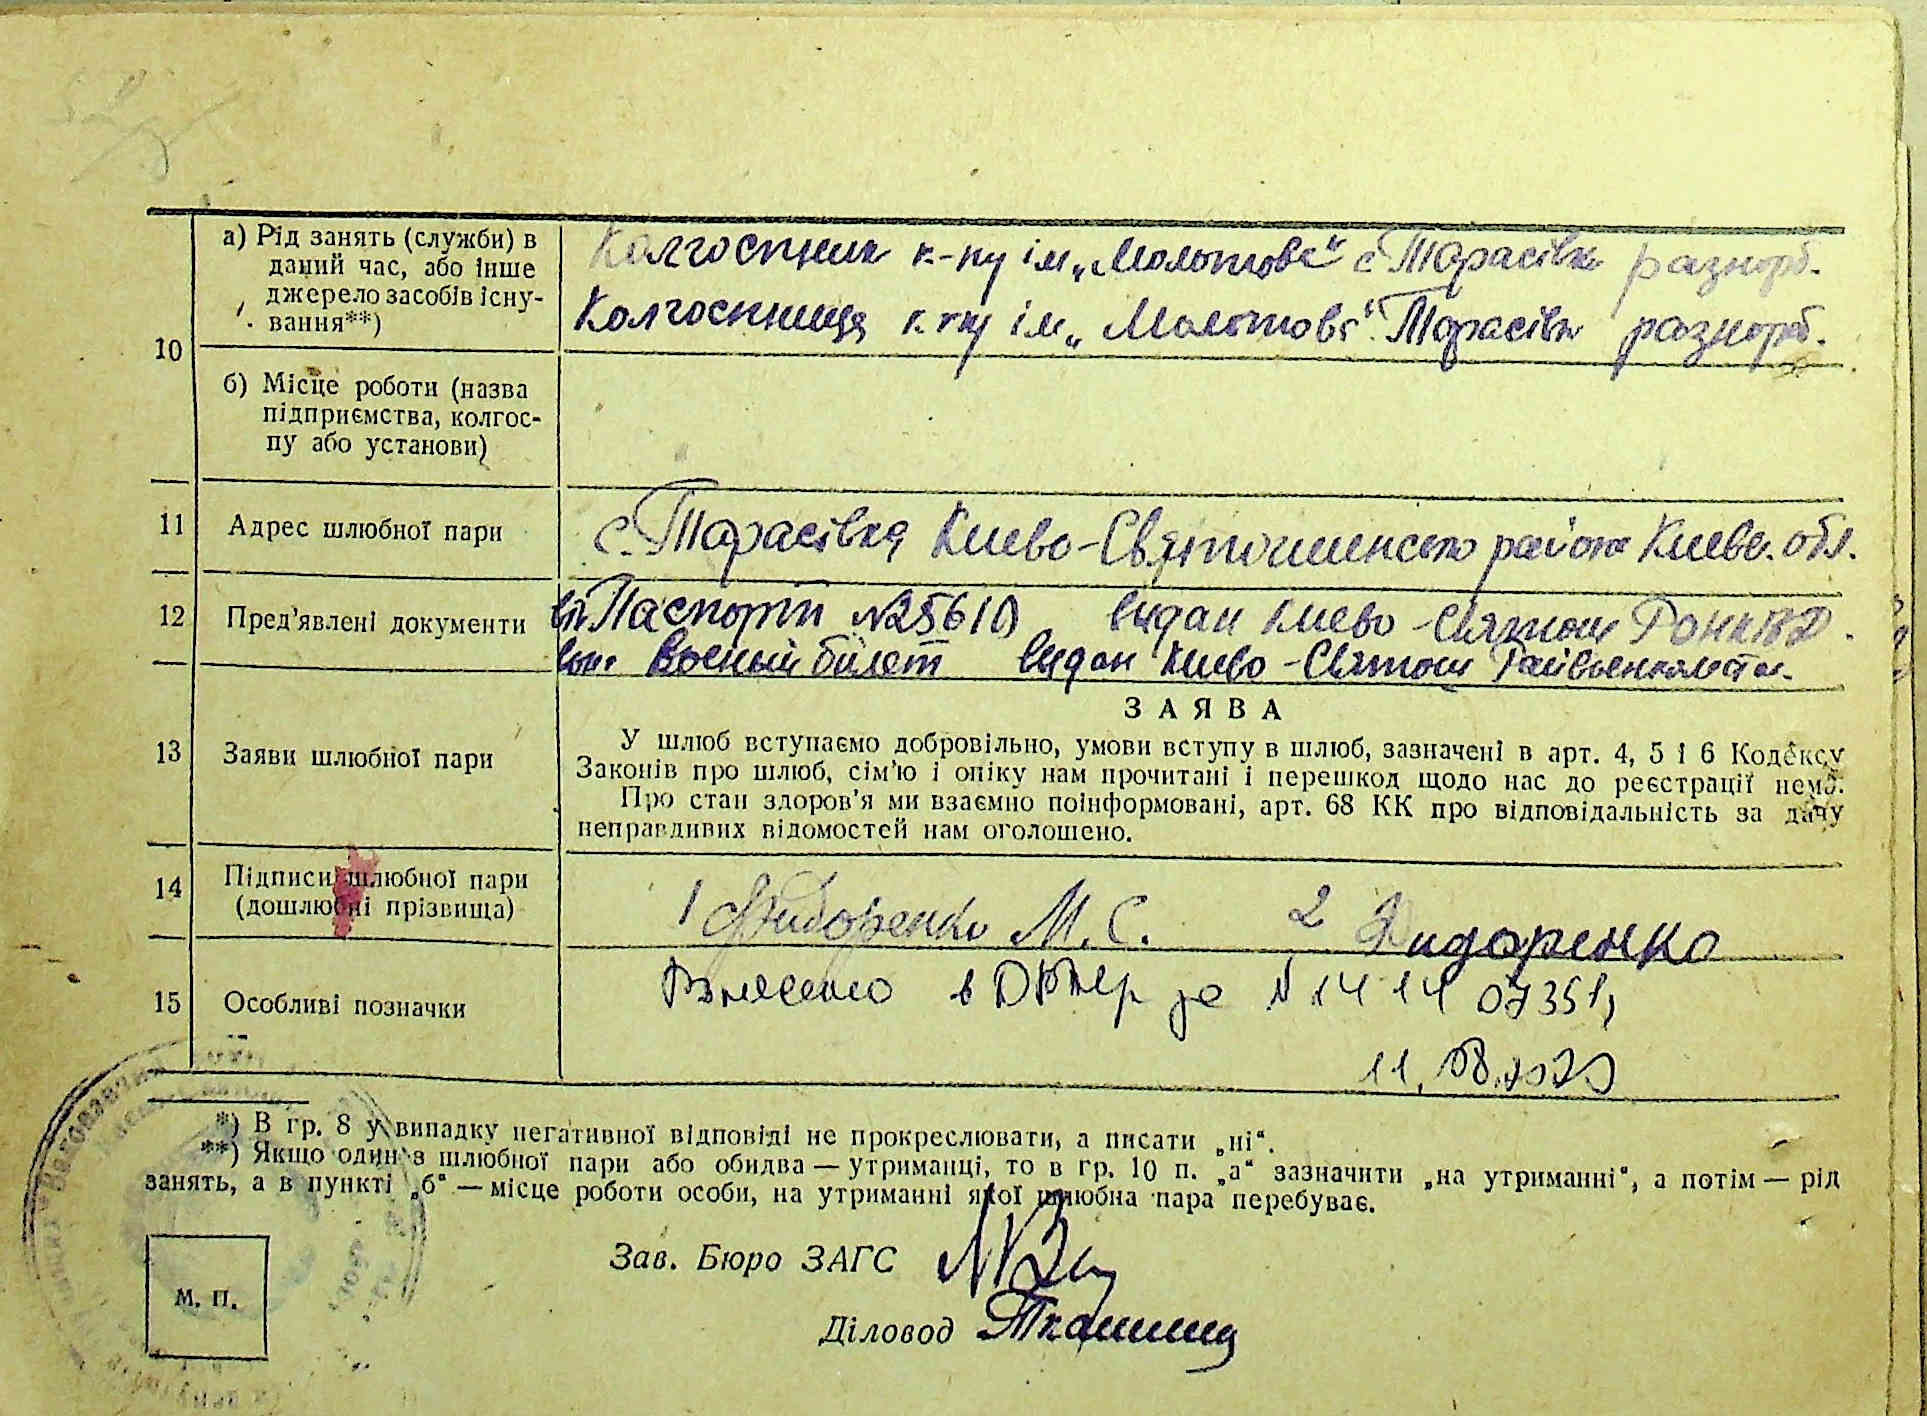 10
а) Рід занять (служби) в
даний час, або інше
джерело засобів існу-
вання**)
Колгоспник к-пу ім „Молотова“ с Тарасівка разнораб.
Колгоспниця к-пу ім „Молотова“ Тарасівка разнораб.
б) Місце роботи (назва
підприємства, колгос-
пу або установи)
11
Адрес шлюбної пари
с. Тарасівка Києво-Святошинсько района Києвс. обл.
12
Пред'явлені документи
Паспорт №25610 видан Києво-Святош РОНКВД.
Воєный білет видан Києво-Святош Райвоенкоматом.
13
Заяви шлюбної пари
ЗАЯВА
У шлюб вступаємо добровільно, умови вступу в шлюб, зазначені в арт. 4, 5 і 6 Кодексу
Законів про шлюб, сім'ю і опіку нам прочитані і перешкод щодо нас до реєстрації нема.
Про стан здоров'я ми взаємно поінформовані, арт. 68 КК про відповідальність за дачу
неправдивих відомостей нам оголошено.
14
Підписи шлюбної пари
(дошлюбні прізвища)
1 Сидоренко М. С. 2 Сидоренко
15
Особливі позначки
Внесено в за № 14 14 07351,
11.
*) В гр. 8 у випадку негативної відповіді не прокреслювати, а писати „ні“.
**) Якщо один з шлюбної пари або обидва — утриманці, то в гр. 10 п. „а“ зазначити „на утриманні“, а потім — рід
занять, а в пункті „б“ — місце роботи особи, на утриманні якої шлюбна пара перебуває.
Зав. Бюро ЗАГС
Діловод
М. П.